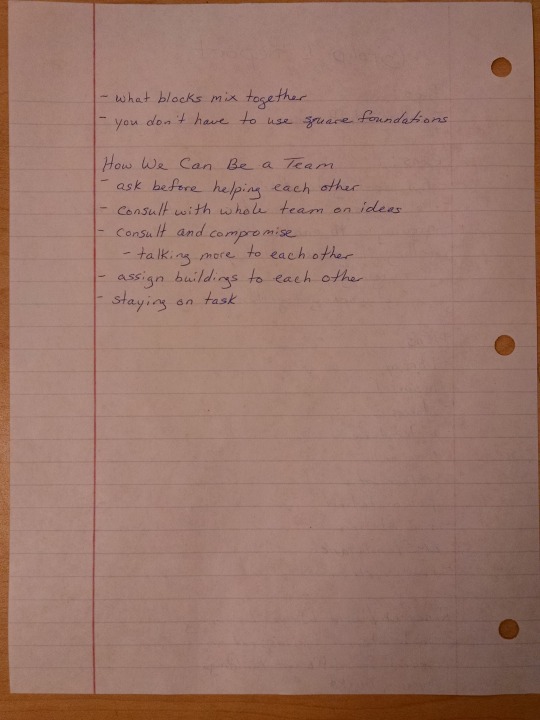 - what blocks mix together
- you don't have to use square foundations
How We Can Be a Team
- ask before helping each other
- consult with whole team on ideas
- consult and compromise
- talking more to each other
- assign buildings to each other
- staying on task